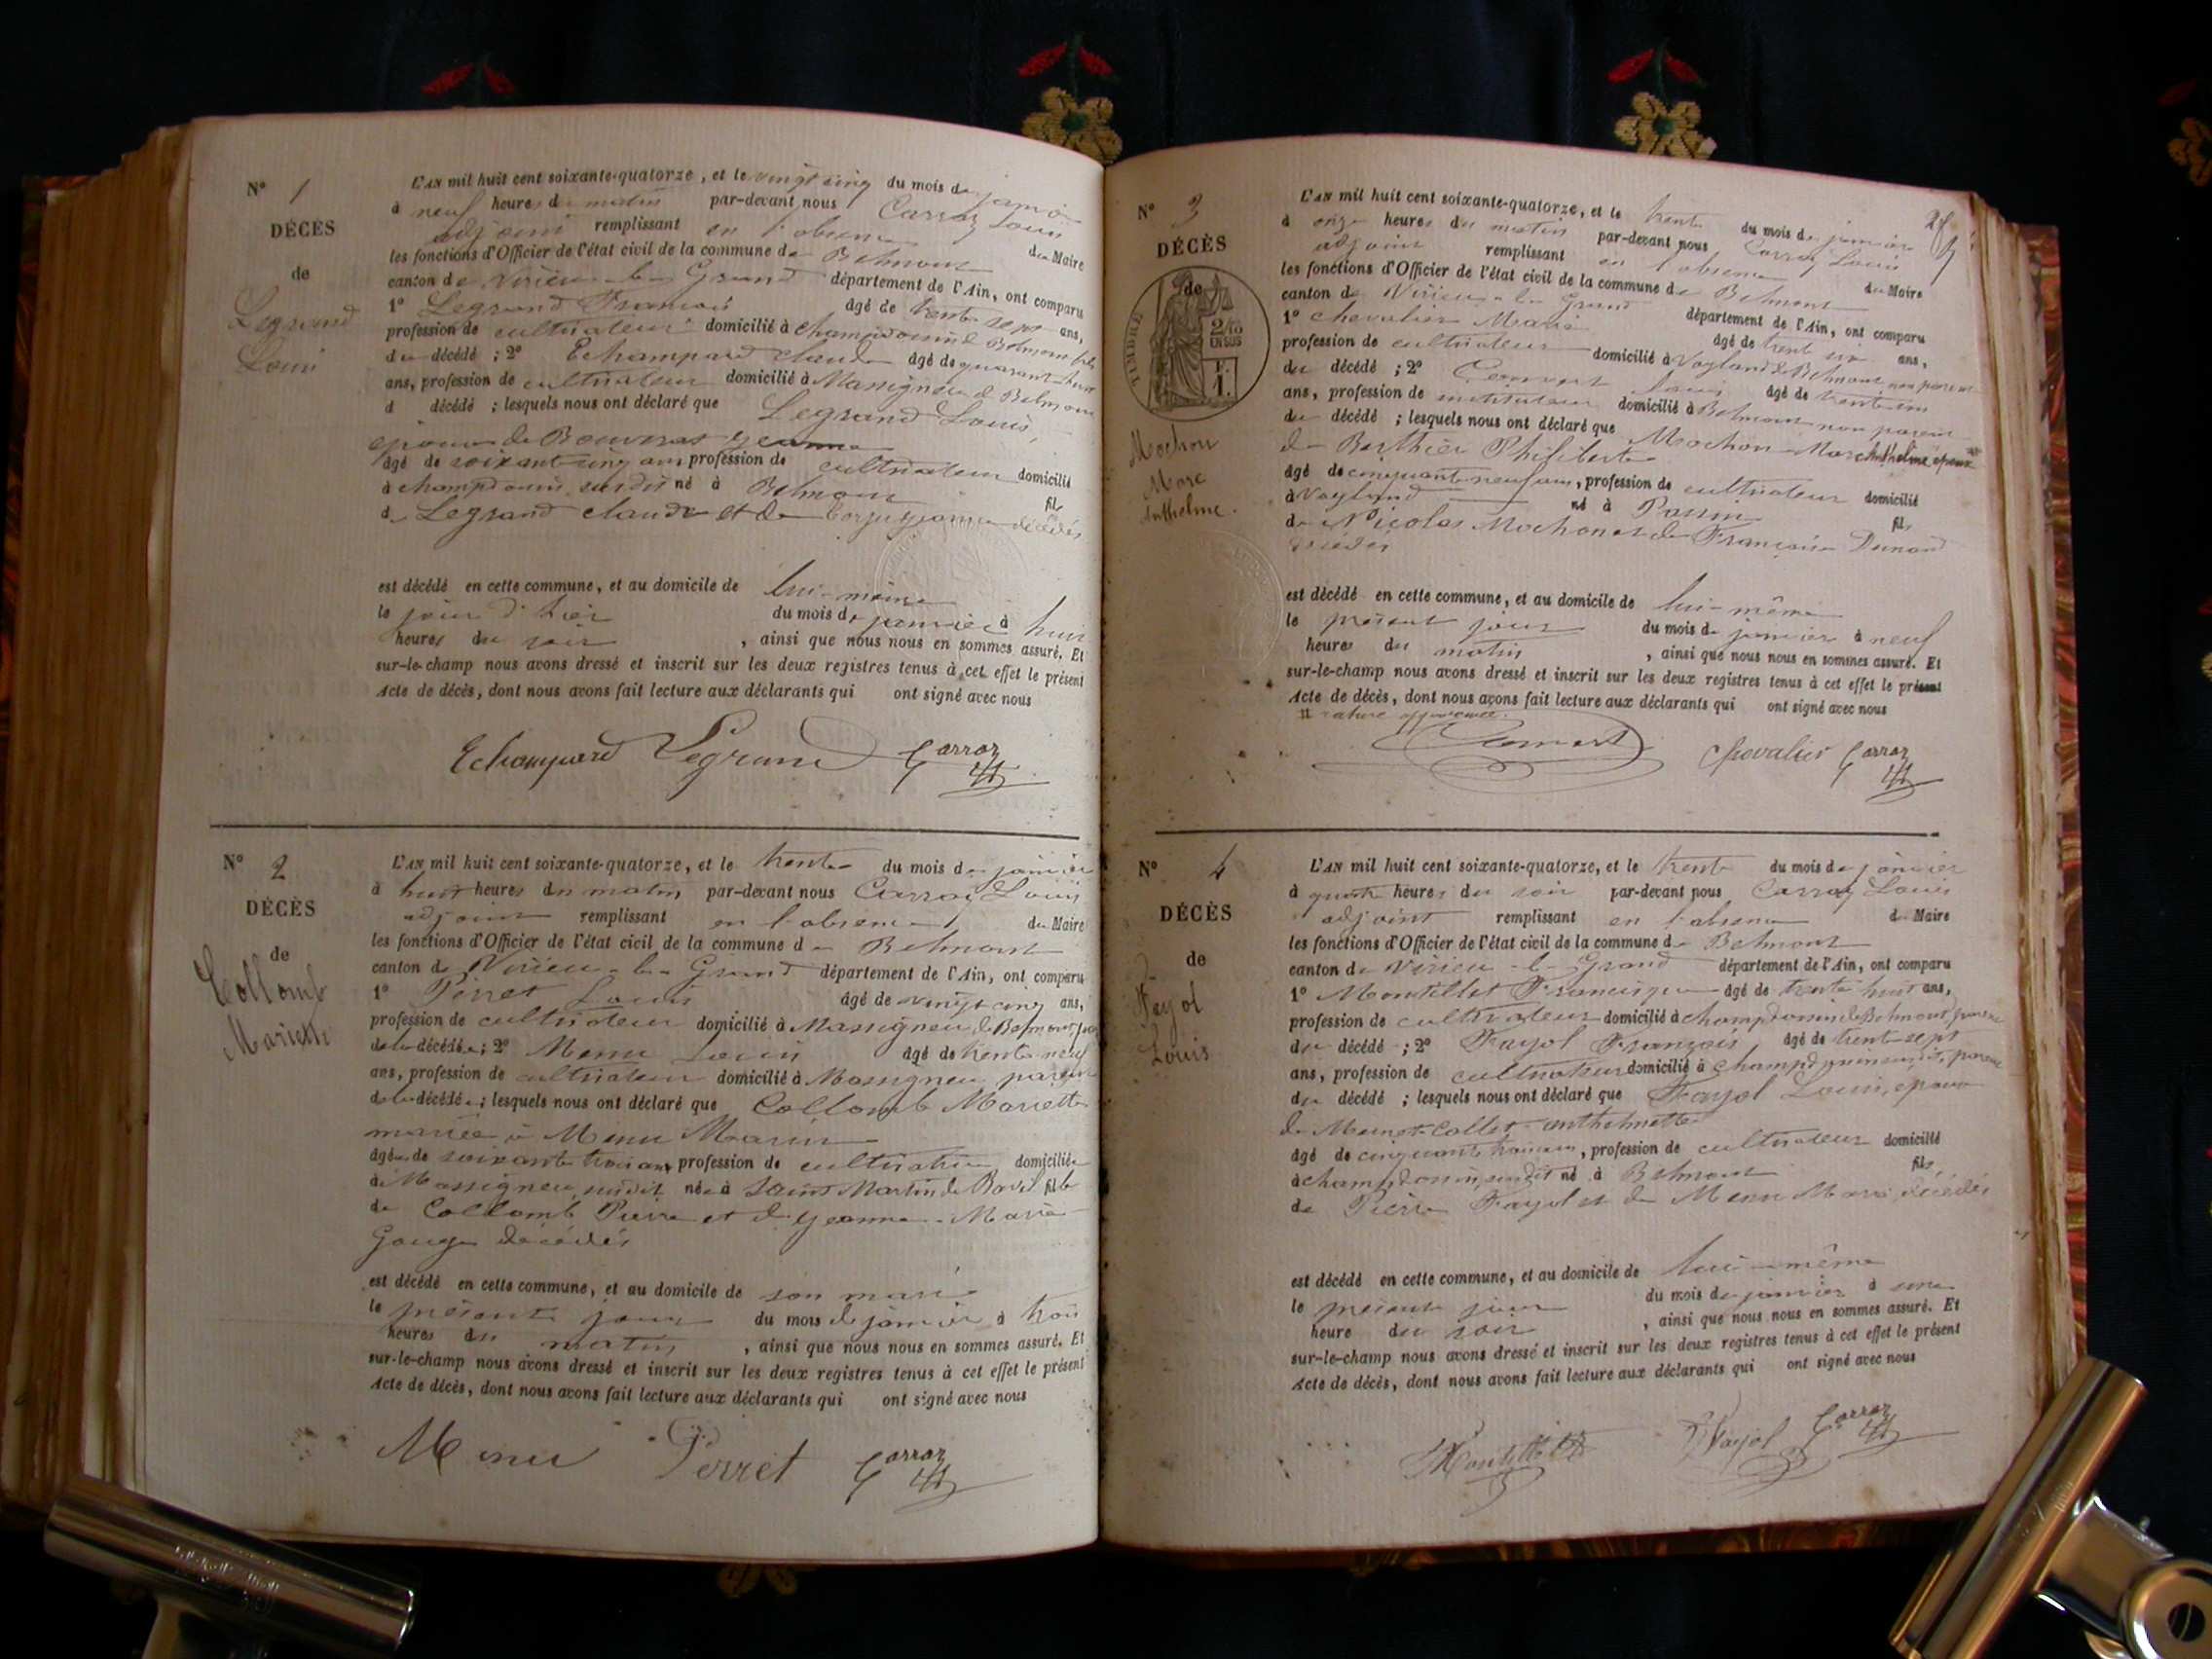 N° 1
DÉCÈS
de
Legrand
Louis
L'AN mil huit cent soixante-quatorze, et le vingt cinq du mois de janvier
à neuf heures du matin par-devant nous Carraz Louis
adjoint remplissant en l'absence du Maire
les fonctions d'Officier de l'état civil de la commune de Belmont
canton de Virieu-le-Grand département de l'Ain, ont comparu
1° Legrand François âgé de trente sept ans,
profession de cultivateur domicilié à Champdossin de Belmont fils
du décédé ; 2° Echampard Claude âgé de quarante huit
ans, profession de cultivateur domicilié à Massigneu de Belmont
d décédé ; lesquels nous ont déclaré que Legrand Louis,
époux de Bouvras Jeanne
âgé de soixante cinq ans profession de cultivateur domicilié
à Champdossin susdit né à Belmont fils
de Legrand Claude et de Jeanne décédés
est décédé en cette commune, et au domicile de lui-même
le jour d'hier du mois de janvier à huit
heures du soir , ainsi que nous nous en sommes assuré. Et
sur-le-champ nous avons dressé et inscrit sur les deux registres tenus à cet effet le présent
Acte de décès, dont nous avons fait lecture aux déclarants qui ont signé avec nous
Echampard Legrand Carraz
N° 2
DÉCÈS
de
Collomb
Mariette
L'AN mil huit cent soixante-quatorze, et le trente du mois de janvier
à huit heures du matin par-devant nous Carraz Louis
adjoint remplissant en l'absence du Maire
les fonctions d'Officier de l'état civil de la commune de Belmont
canton de Virieu-le-Grand département de l'Ain, ont comparu
1° Perret Louis âgé de vingt cinq ans,
profession de cultivateur domicilié à Massigneu de Belmont
de la décédée ; 2° Menu Louis âgé de trente neuf
ans, profession de cultivateur domicilié à Massigneu parent
de la décédée ; lesquels nous ont déclaré que Collomb Mariette
mariée à Menu Marin
âgée de soixante trois ans profession de cultivatrice domiciliée
à Massigneu susdit née à Saint Martin de Bavel fille
de Collomb Pierre et de Jeanne-Marie
Gouge décédés
est décédé en cette commune, et au domicile de son mari
le présent jour du mois de janvier à trois
heures du matin , ainsi que nous nous en sommes assuré. Et
sur-le-champ nous avons dressé et inscrit sur les deux registres tenus à cet effet le présent
Acte de décès, dont nous avons fait lecture aux déclarants qui ont signé avec nous
Menu Perret Carraz
N° 3
DÉCÈS
de
TIMBRE
2/10
EN SUS
F.
1.
Mochon
Marc
Anthelme.
L'AN mil huit cent soixante-quatorze, et le trente du mois de janvier
à onze heures du matin par-devant nous Carraz Louis
adjoint remplissant en l'absence du Maire
les fonctions d'Officier de l'état civil de la commune de Belmont
canton de Virieu-le-Grand département de l'Ain, ont comparu
1° Chevalier Marin âgé de trente six ans,
profession de cultivateur domicilié à Vogland de Belmont non parent
du décédé ; 2° Louis âgé de trente un
ans, profession de instituteur domicilié à Belmont non parent
du décédé ; lesquels nous ont déclaré que Mochon Marc Anthelme époux
de Berthier Philiberte
âgé de cinquante neuf ans, profession de cultivateur domicilié
à Vogland né à Passin fils
de Nicolas Mochon et de Françoise Dunand
décédés
est décédé en cette commune, et au domicile de lui-même
le présent jour du mois de janvier à neuf
heures du matin , ainsi que nous nous en sommes assuré. Et
sur-le-champ nous avons dressé et inscrit sur les deux registres tenus à cet effet le présent
Acte de décès, dont nous avons fait lecture aux déclarants qui ont signé avec nous
rature approuvée.
Chevalier Carraz
N° 4
DÉCÈS
de
Fayol
Louis
L'AN mil huit cent soixante-quatorze, et le trente du mois de janvier
à quatre heures du soir par-devant nous Carraz Louis
adjoint remplissant en l'absence du Maire
les fonctions d'Officier de l'état civil de la commune de Belmont
canton de Virieu-le-Grand département de l'Ain, ont comparu
1° Montillet Francisque âgé de trente huit ans,
profession de cultivateur domicilié à Champdossin de Belmont parent
du décédé ; 2° Fayol François âgé de trente-sept
ans, profession de cultivateur domicilié à Champdossin susdit, parent
du décédé ; lesquels nous ont déclaré que Fayol Louis, époux
de Collet Anthelmette
âgé de cinquante trois ans, profession de cultivateur domicilié
à Champdossin, susdit né à Belmont fils,
de Pierre Fayol et de Menu Marie décédés
est décédé en cette commune, et au domicile de lui-même
le présent jour du mois de janvier à une
heure du soir , ainsi que nous nous en sommes assuré. Et
sur-le-champ nous avons dressé et inscrit sur les deux registres tenus à cet effet le présent
Acte de décès, dont nous avons fait lecture aux déclarants qui ont signé avec nous
Montillet Fayol Carraz